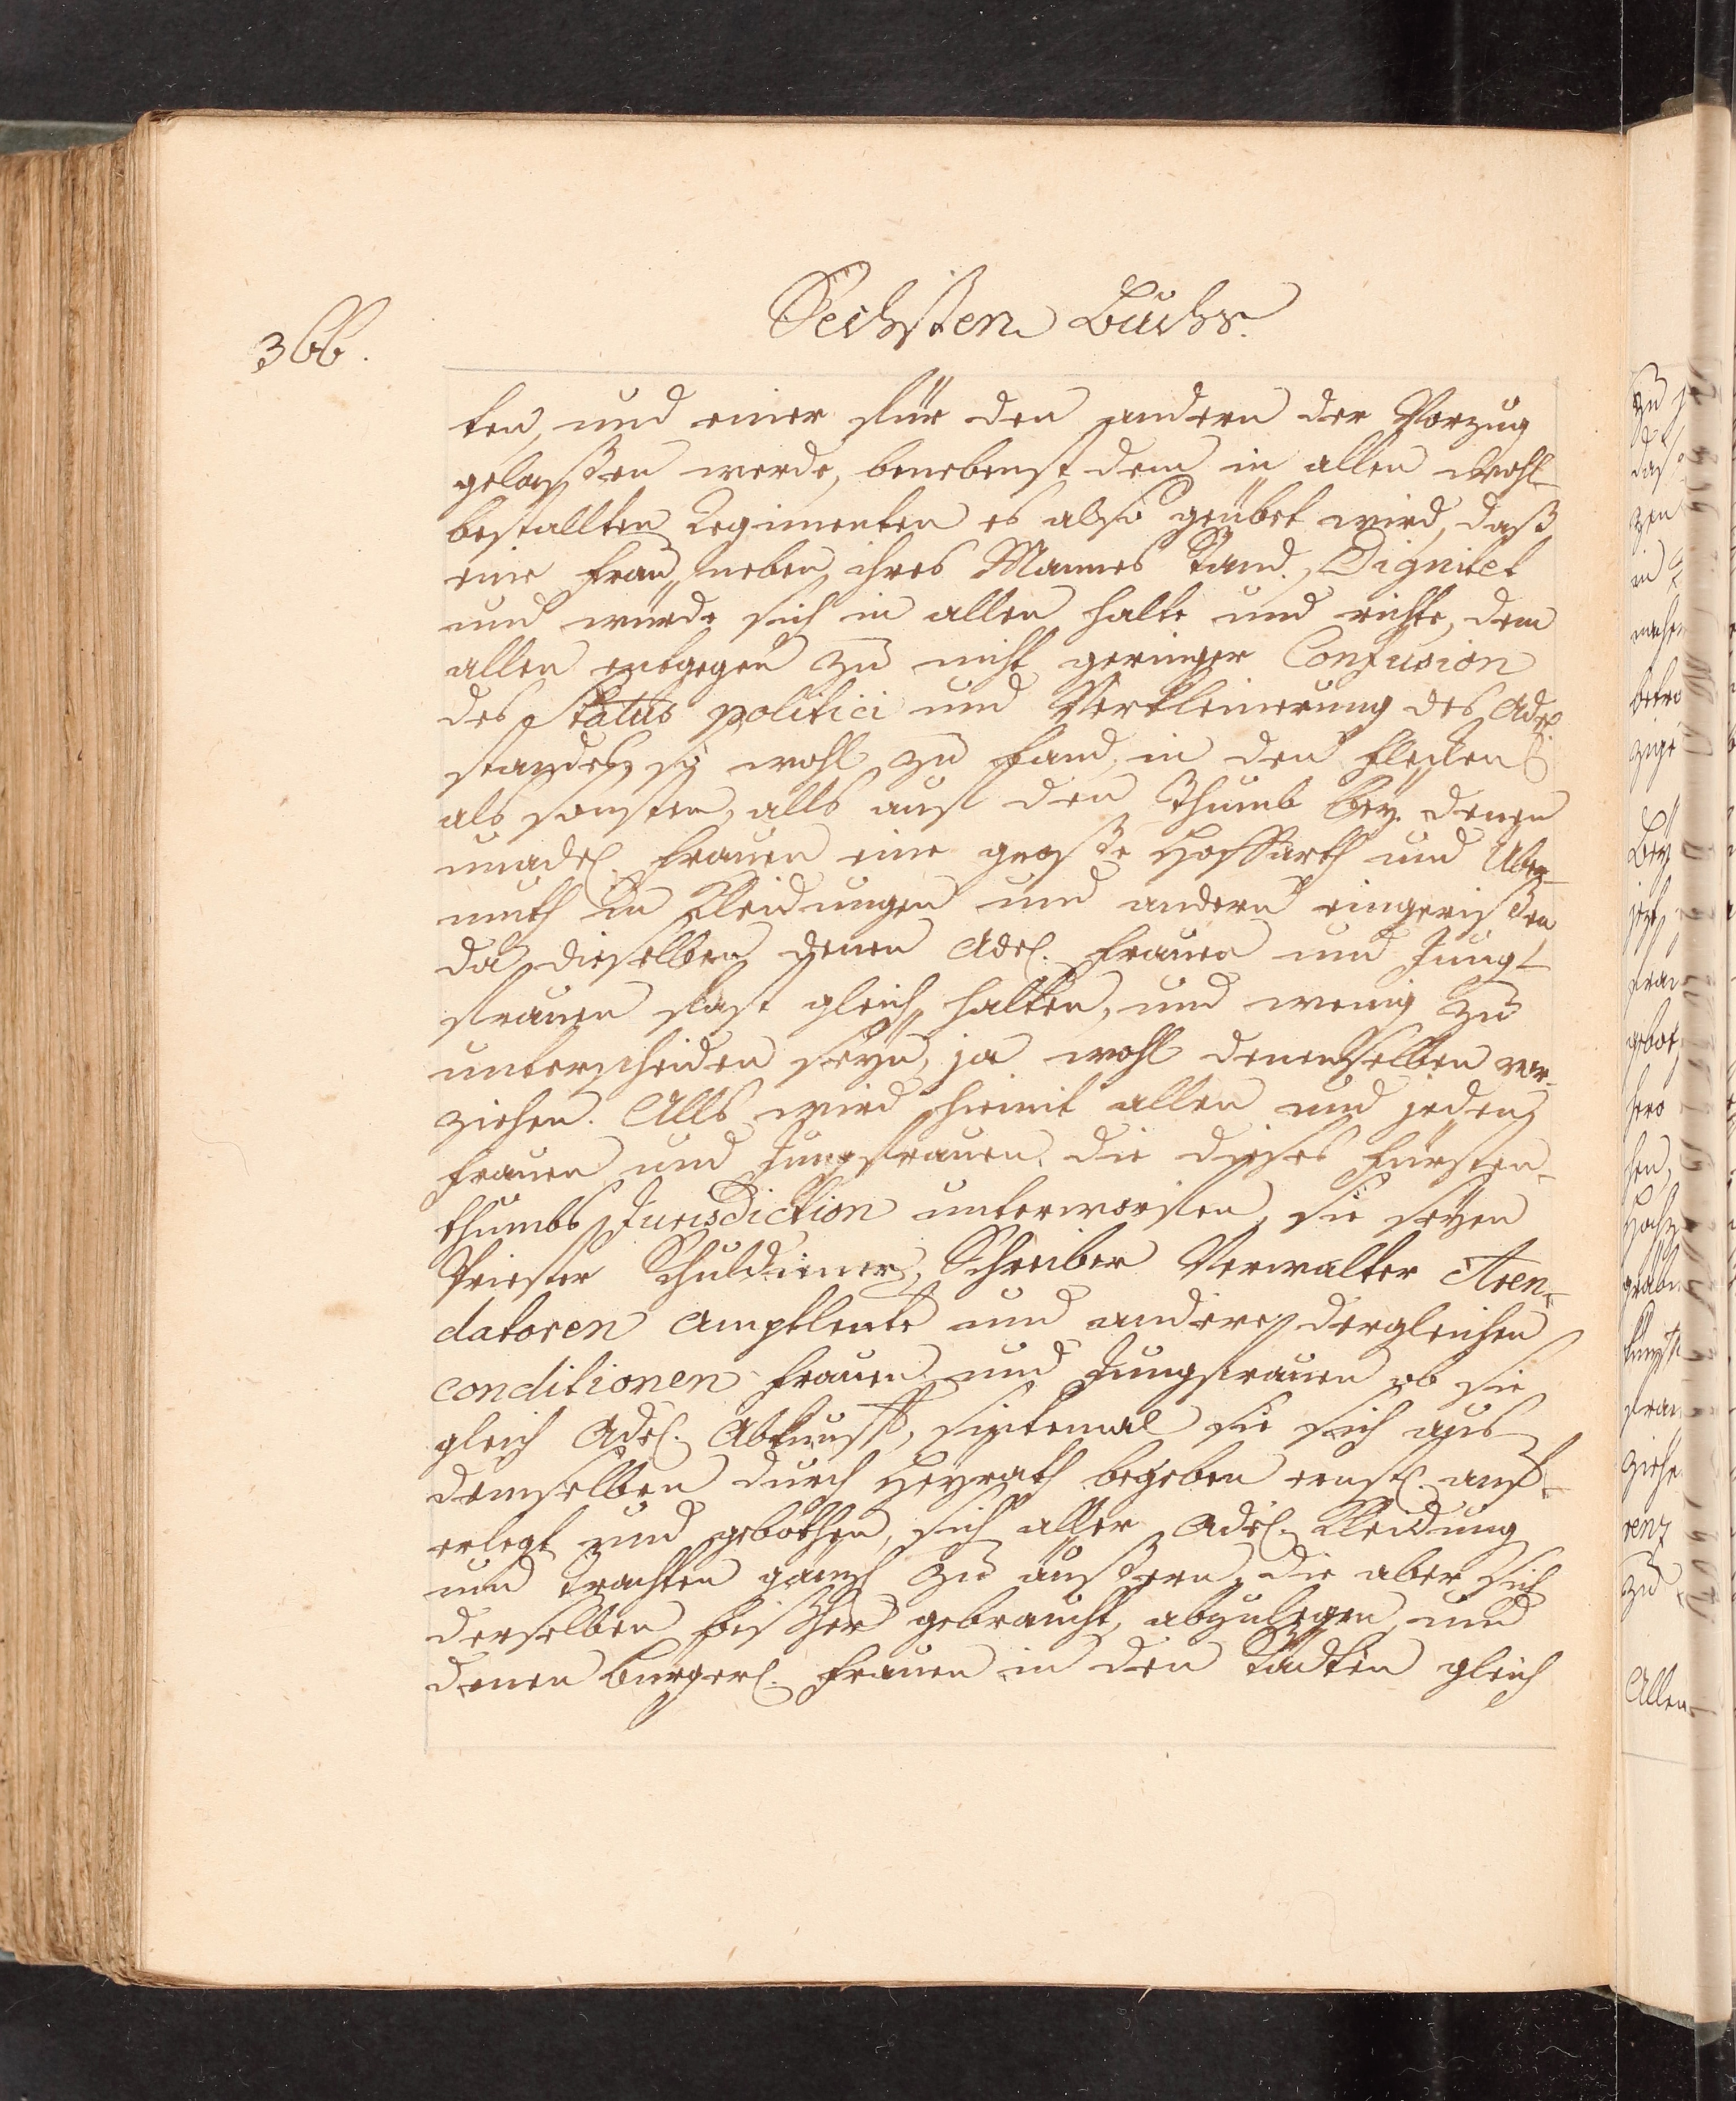 366.
Sechsten Buchs.
ten, und einer für den andern der Vorzug
gelaßen werde, benebenst dem in allen wohl-
bestallten Regimenten es also geübet wird, daß
eine Frau neben ihres Mannes Stand. Dignitet
und würde sich in allen halte und richte, dem
allen entgegen zu nicht geringer Confusion
des Status politici und Verkleinerung des Adel
standes, so wohl zu Land, in den Flecken
als sonsten, alls auf den Thumb bey denen
unadel. Frauen eine große Hoffarth und Uber-
muth in Kleidungen und andern eingerißen
da dieselben denen Adel. Frauen und Jung-
frauen fast gleich halten, und wenig zu
unterscheiden seyn, ja wohl denenselben vor-
ziehen. Alls wird hiemit allen und jeden
Frauen und Jungfrauen. die dieses Fürsten-
thumbs Jurisdiction unterworfen, sie seyen
Priester Schuldiener, Schreiber Verwalter Aren-
datoren Amptleute und andere dergleichen
conditionen Frauen und Jungfrauen ob sie
gleich Adel. Abkunfft, sintemal sie sich aus
demselben durch Heyrath begeben ernstl. auf-
erlegt und gebothen, sich aller Adel. Kleidung
und Trachten gäntzl zu äußern, die aber sich
derselben bißher gebraucht, abzulegen und
denen Bürgerl. Frauen in den Städten gleich